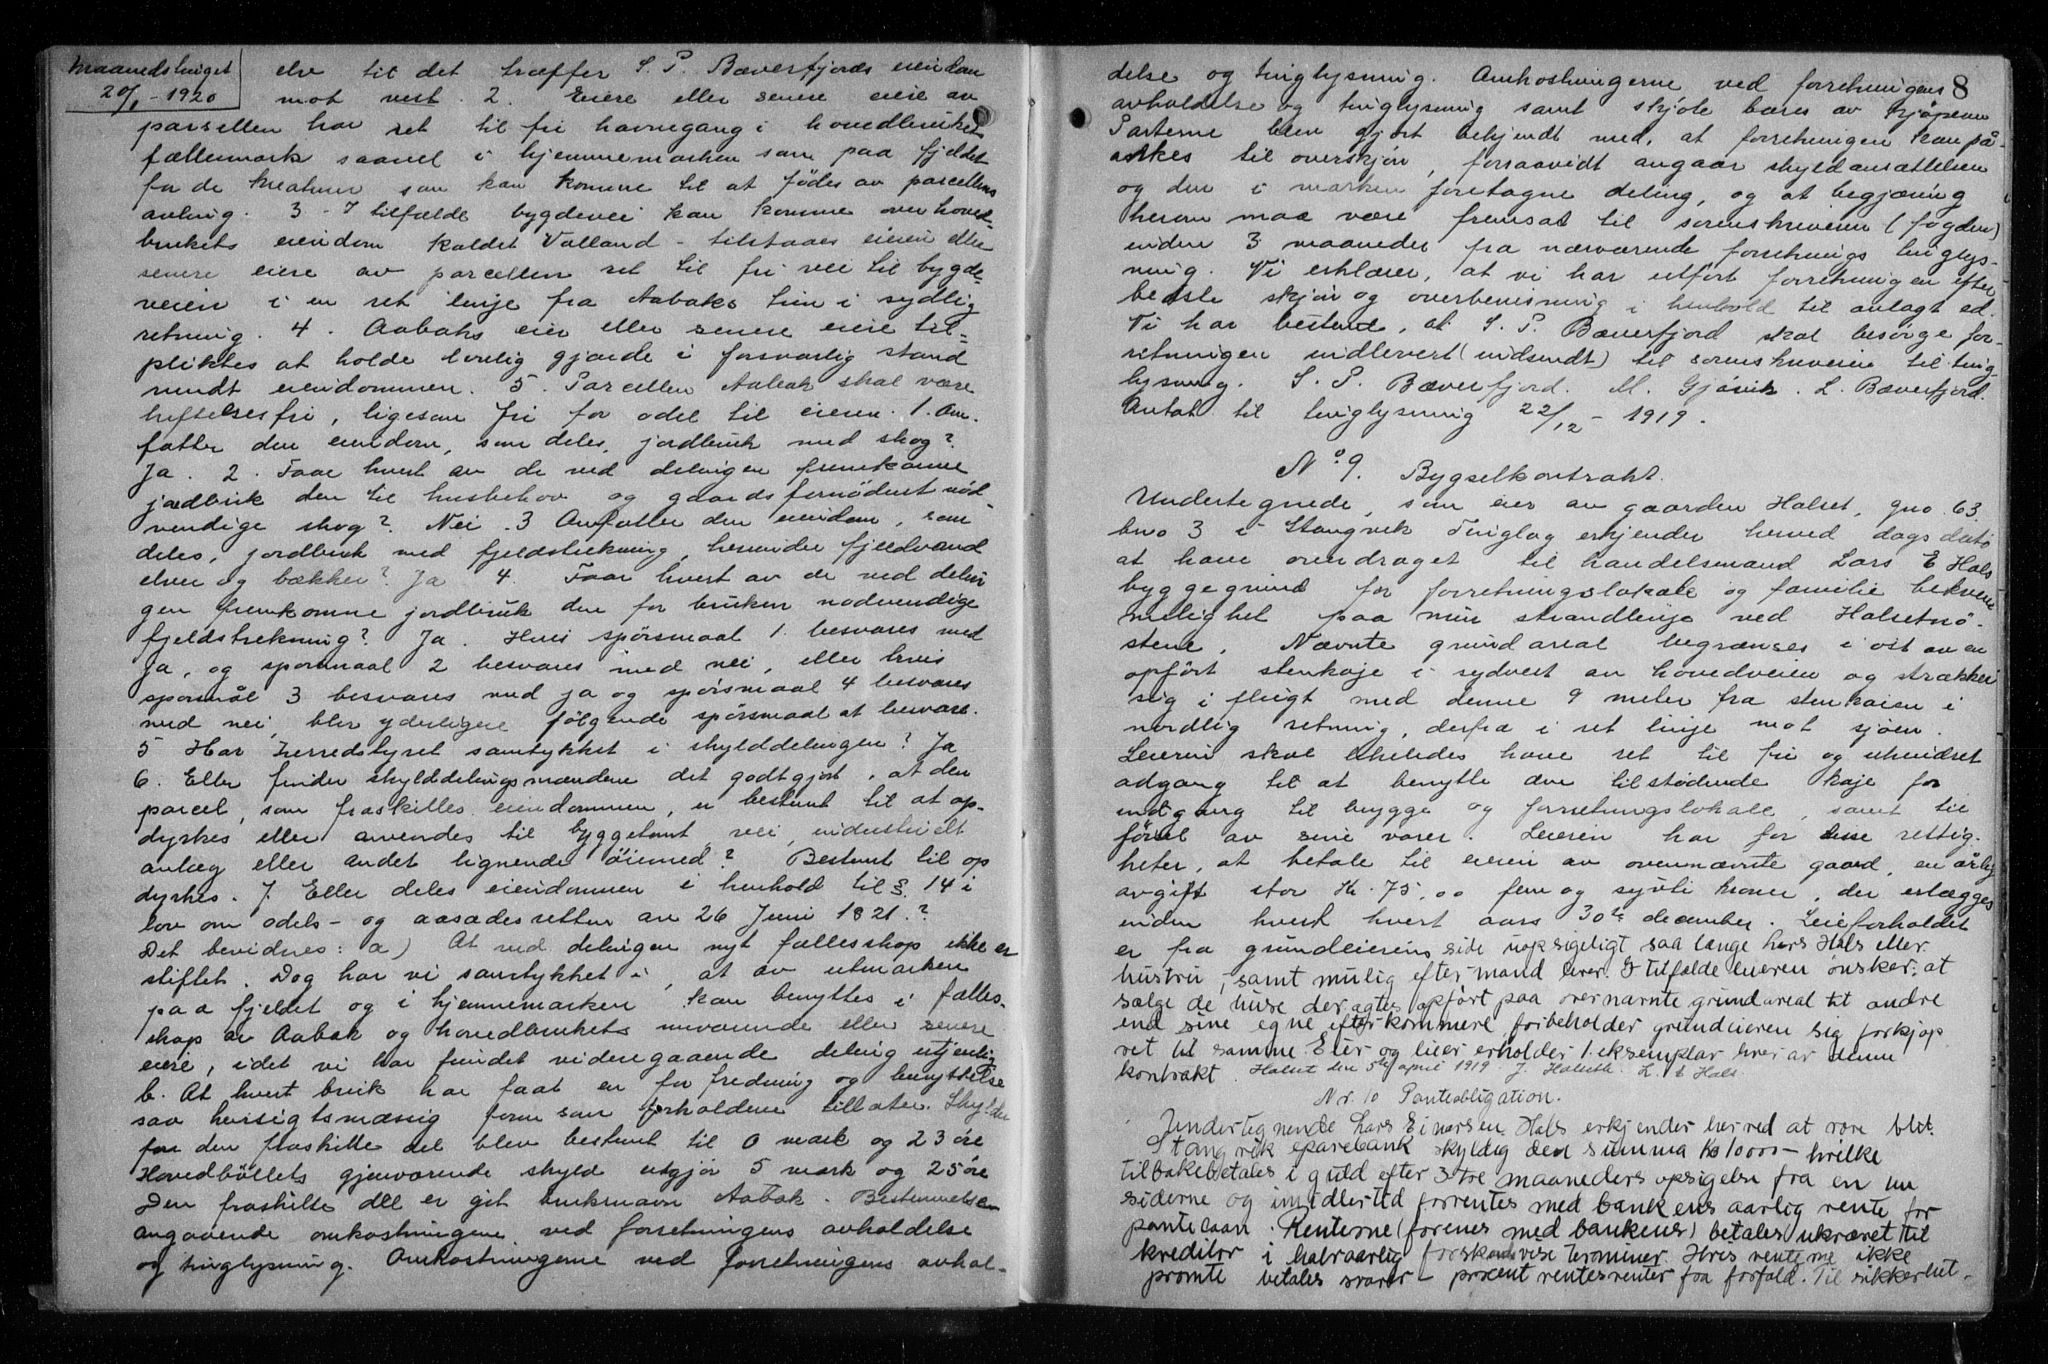 Maanedstinget
20/1 - 1920
elv til det træffer S. P. Bæverfjords eiendom
mot vest. 2. Eiere eller senere eiere av
parsellen har ret til fri havnegang i hovedbrukets
fællesmark saavel i hjemmemarken som paa fjeldet
for de kreaturer som kan komme til at födes av parcellens
avling. 3 - I tilfælde bygdevei kan komme over hoved-
brukets eiendom kaldet Valland - tilstaaes eieren eller
senere eiere av parcellen ret til fri vei til bygde-
veien i en ret linje fra Aabaks tun i sydlig
retning. 4. Aabaks eier eller senere eiere til-
pliktes at holde lovlig gjærde i forsvarlig stand
rundt eiendommen. 5. Parcellen Aabak skal være
heftelsesfri, ligesom fri for odel til eieren. 1. Om-
fatter den eiendom, som deles, jordbruk med skog?
Ja. 2. Faar hvert av de ved delingen fremkomne
jordbruk den til husbehov og gaardsfornödenhet nöd-
vendige skog? Nei. 3 Omfatter den eiendom, som
deles, jordbruk med fjeldstrekning, herunder fjeldvand
elver og bækker? Ja 4. Faar hvert av de ved delin
gen fremkomne jordbruk den for bruken nødvendige
fjeldstrekning? Ja. Hvis spörsmaal 1. besvares med
ja, og spörsmaal 2 besvares med nei, eller hvis
spörsmål 3 besvares med ja og spörsmaal 4 besvares
med nei, blir yderligere følgende spörsmaal at besvare.
5 Har herredstyret samtykket i skylddelingen? Ja
6. Eller finder skylddelingsmændene det godtgjort, at den
parcel, som fraskilles eiendommen, er bestemt til at op-
dyrkes eller anvendes til byggetomt, vei, industrielt
anlæg eller andet lignende öiemed? Bestemt til op
dyrkes. 7. Eller deles eiendommen i henhold til § 14 i
lov om odels- og aasædesretten av 26 Juni 1821.?
Det bevidnes: a) At ved delingen nyt fællesskap ikke er
stiftet. Dog har vi samtykket i, at av utmarken
paa fjeldet og i hjemmemarken kan benyttes i fælles-
skap av Aabak og hovedbrukets nuværende eller senere
eiere, idet vi har fundet videregaaende deling utjenlig
b. At hvert bruk har faat en for fredning og benyttelse
saa hensigtsmæssig form som forholdene tillater. Skylden
for den fraskilte del blev bestemt til 0 mark og 23 öre
Hovedböllets gjenværende skyld utgjör 5 mark og 25 öre
Den fraskilte del er git bruksnavn Aabak. Bestemmelsen
angaaende omkostningene ved forretningens avholdelse
og tinglysning. Omkostningerne ved forretningens avhol-
8
delse og tinglysning. Omkostningerne ved forretningens
avholdelse og tinglysning samt skjöte bæres av kjöperen
Parterne blev gjort bekjendt med, at forretningen kan på-
ankes til overskjön, forsaavidt angaar skyldansættelsen
og den i marken foretagne deling, og at begjæring
herom maa være fremsat til sorenskriveren (fogden)
inden 3 maaneder fra nærværende forretnings tinglys-
ning. Vi erklærer, at vi har utfört forretningen efter
bedste skjön og overbevisning i henhold til avlagt ed.
Vi har bestemt, at S. P. Bæverfjord skal besørge for-
retningen indlevert (indsendt) til sorenskriveren til ting-
lysning. S. P. Bæverfjord. M. Gjövik. L. Bæverfjord.
Antat til tinglysning 22/12 - 1919.
No. 9. Bygselkontrakt.
Undertegnede, som eier av gaarden Halset, gno. 63
bno 3 i Stangvik Tinglag erkjender herved dags dato
at have overdraget til handelsmand Lars E Hals
byggegrund for forretningslokale og familie bekvem
melighet paa min strandlinje ved Halsetnö-
stene. Nævnte grundareal begrænses i öst av en
opfört stenkaje i sydvest av hovedveien og strækker
sig i flugt med denne 9 meter fra stenkaien i
nordlig retning, derfra i ret linje mot sjöen.
Leieren skal likeledes have ret til fri og uhindret
adgang til at benytte den tilstödende kaje for
indgang til brygge og forretningslokale, samt til
försel av sine varer. Leieren har for disse rettig-
heter, at betale til eieren av ovennævnte gaard, en årlig
avgift stor Kr. 75,00 fem og sytti kroner, der erlægges
inden hvert hvert aars 30te december. Leieforholdet
er fra grundeierens side uopsigeligt saa længe Lars Hals eller
hustru, samt mulig eftermand lever. I tilfælde leieren ønsker at
sælge de huse der agtes opført paa overnævnte grundareal til andre
end sine egne efterkommere forbeholder grundeieren sig forkjøp
ret til samme. Eier og leier erholder 1. eksemplar hver av denne
kontrakt Halset den 5te april 1919 J. Halseth. L. E Hals.
Nr. 10 Panteobligation.
Undertegnende Lars Einarsen Hals erkjender herved at være blit
Stangvik sparebank skyldig den summa Kr 10000 - hvilke
tilbakebetales i guld efter 3 tre maaneders opsigelse fra en av
siderne og imidlertid forrentes med bankens aarlig rente for
pantelaan. Renterne (forenes med bankens) betales ukrævet til
kreditor i halvaarlig forskudsvise terminer. Hvis renterne ikke
promte betales svarer - procent rentesrenter fra forfald. Til sikkerhet-